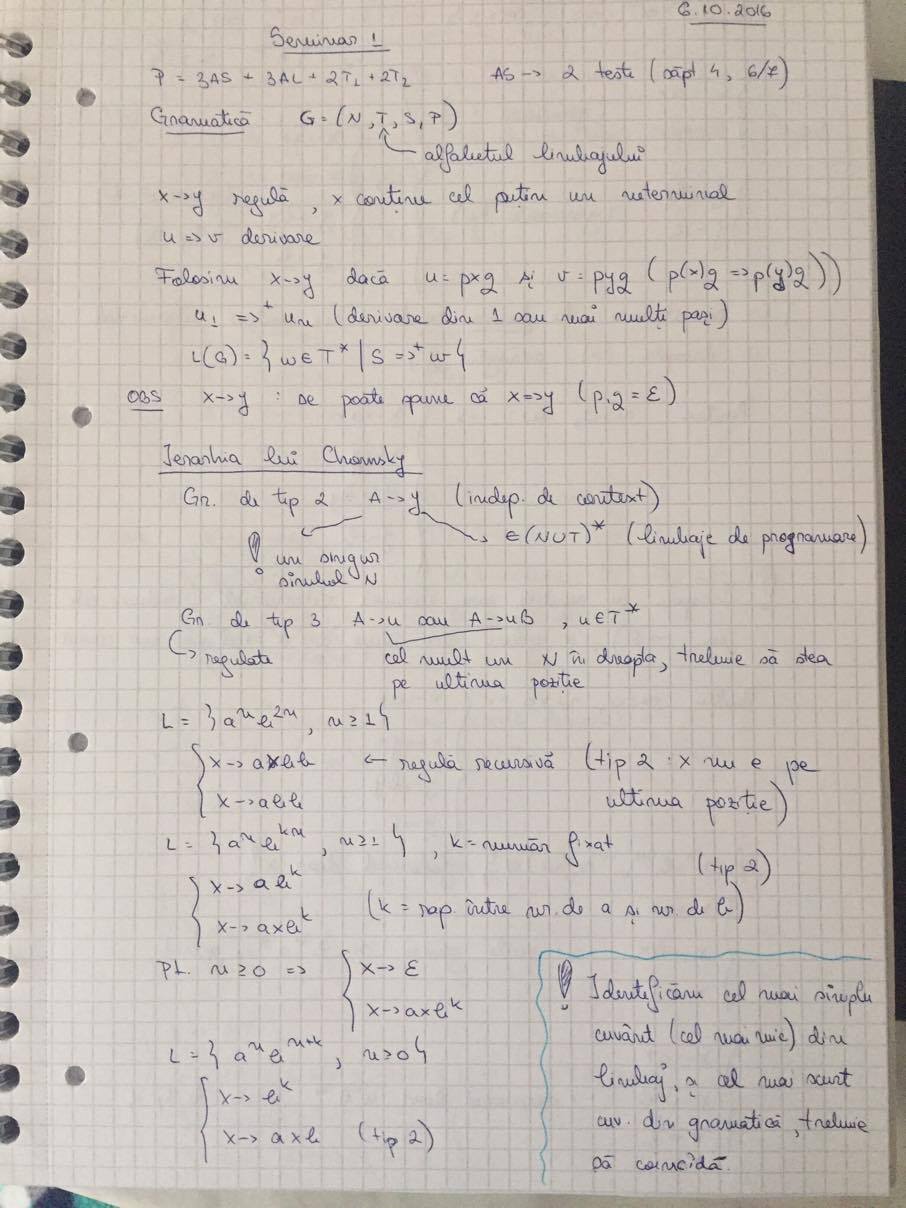 6.10.2016
Seminar 1
P = 3AS + 3AL + 2T₁ + 2T₂ AS → 2 teste (săpt 4, 6/7)
Gramatică G = (N, T, S, P)
alfabetul limbajului
x → y regulă, x conține cel puțin un neterminal
u => v derivare
Folosim x → y dacă u = pxq și v = pyq (p(x)q => p(y)q))
u₁ =>⁺ uₙ (derivare din 1 sau mai mulți pași)
L(G) = { w ∈ T* | S =>⁺ w }
OBS x → y : se poate spune că x => y (p, q = ε)
Ierarhia lui Chomsky
Gr. de tip 2 A → y (indep. de context)
∈ (N∪T)* (limbaje de programare)
! un singur
simbol N
Gr. de tip 3 A → u sau A → uB, u ∈ T*
↳ regulate cel mult un N în dreapta, trebuie să stea
pe ultima poziție
L = { aⁿb²ⁿ, n ≥ 1 }
x → axbb ← regulă recursivă (tip 2 : x nu e pe
x → abb ultima poziție)
L = { aⁿbᵏⁿ, n ≥ 1 }, k = număr fixat
(tip 2)
x → abᵏ
x → axbᵏ (k = rap. între nr. de a și nr. de b)
Pt. n ≥ 0 => x → ε
x → axbᵏ
L = { aⁿbⁿ⁺ᵏ, n ≥ 0 }
x → bᵏ
x → axb (tip 2)
! Identificăm cel mai simplu
cuvânt (cel mai mic) din
limbaj, și cel mai scurt
cuv. din gramatică, trebuie
să coincidă.